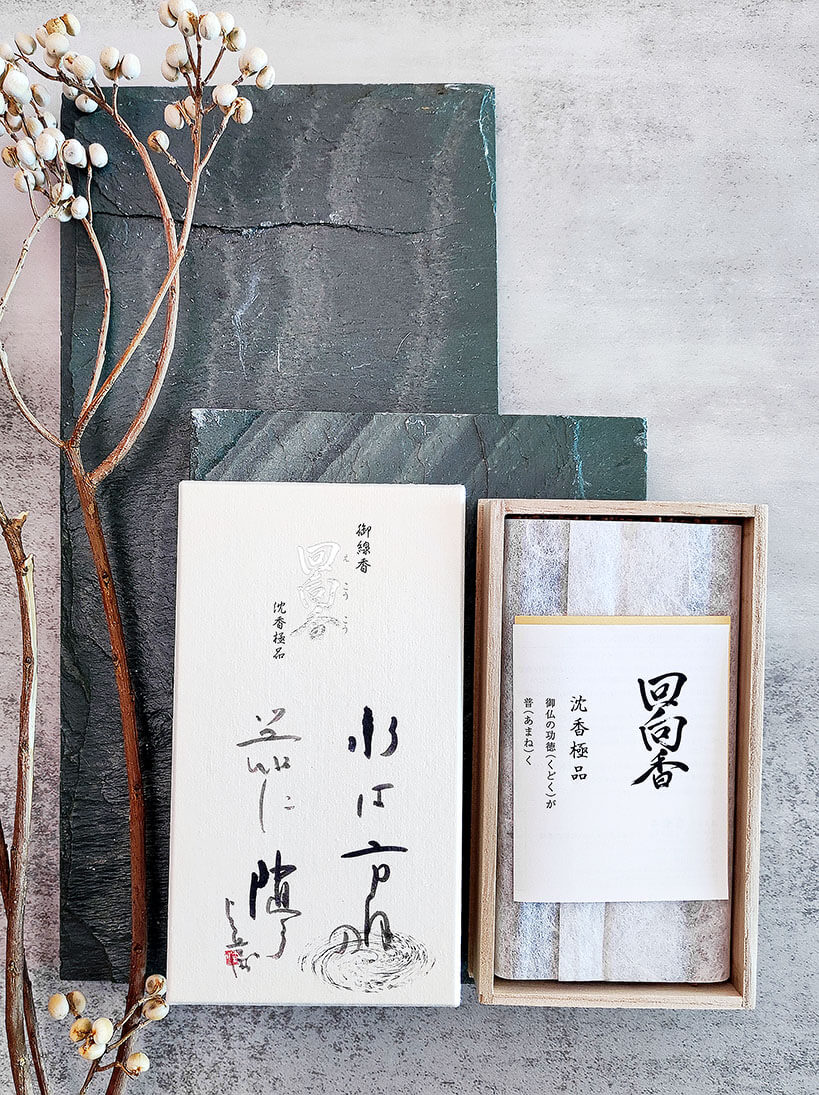 御線香
回向香
え こう こう
沈香極品
水は方円の
器に随う
回向香
沈香極品
御仏の功徳(くどく)が
普(あまね)く